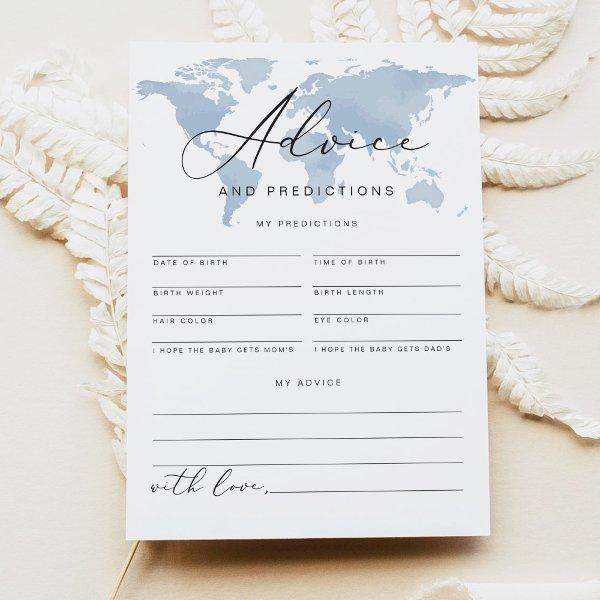 Advice
AND PREDICTIONS
MY PREDICTIONS
DATE OF BIRTH TIME OF BIRTH
BIRTH WEIGHT BIRTH LENGTH
HAIR COLOR EYE COLOR
I HOPE THE BABY GETS MOM'S I HOPE THE BABY GETS DAD'S
MY ADVICE
with love,